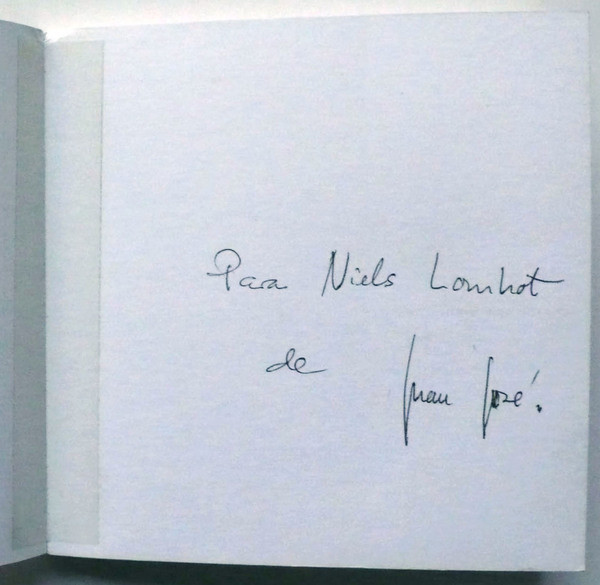 Para Niels Lomhot
de Juan José.